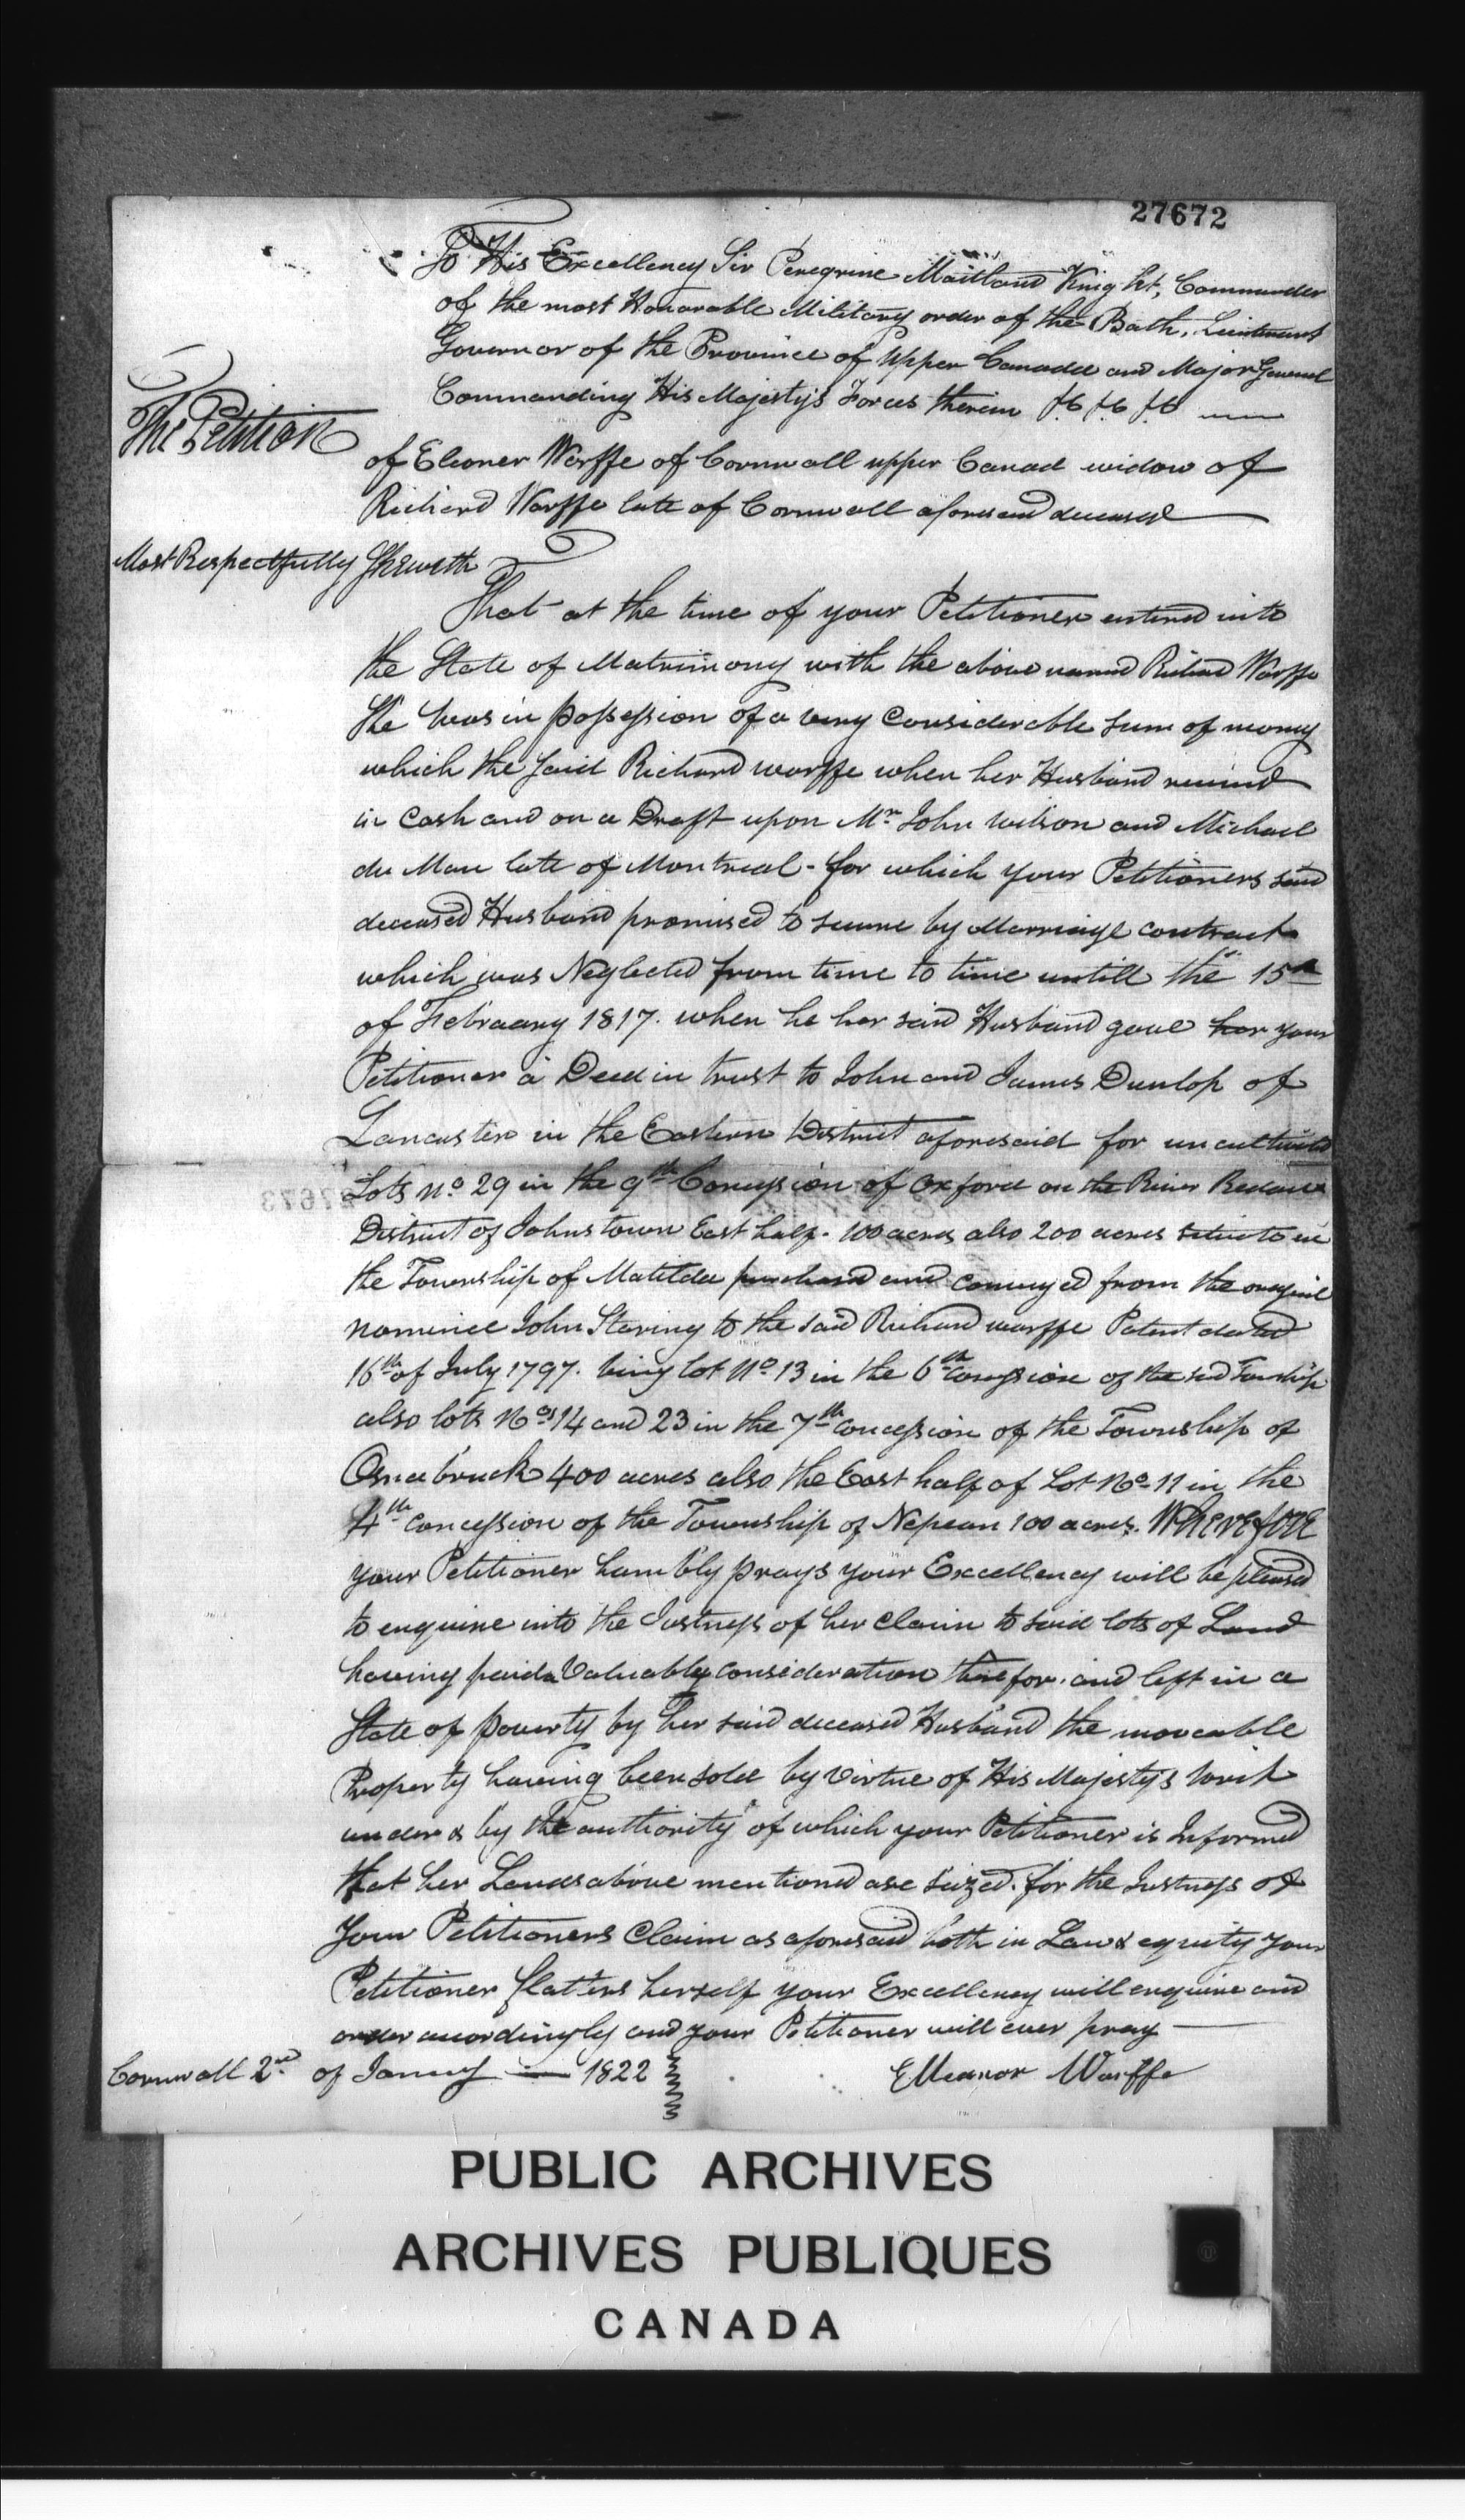 27672
To His Excellency Sir Peregrine Maitland Knight, Commander
of the most Honorable Military order of the Bath, Lieutenant
Governor of the Province of Upper Canada and Major General
Commanding His Majesty's Forces therein &c &c &c
The Petition
of Eleoner Warffe of Cornwall upper Canad widow of
Richard Warffe late of Cornwall aforesaid deceased
Most Respectfully Sheweth
That at the time of your Petitioner entered into
the State of Matrimony with the above named Richard Warffe
She was in possession of a very Considerable Sum of money
which the said Richard Warffe when her Husband received
in Cash and on a Draft upon Mr John Wilson and Michael
du Mau late of Montreal - for which your Petitioners said
deceased Husband promised to secure by Marriage contract
which was Neglected from time to time untill the 15th
of February 1817. when he her said Husband gave her your
Petitioner a Deed in trust to John and James Dunlop of
Lancaster in the Eastern District aforesaid for uncultivated
Lots No 29 in the 9th Concession of Oxford on the River Redaux
District of Johnstown East half. 100 acres also 200 acres situate in
the Township of Matilda purchased and conveyed from the original
nominee John Staring to the said Richard Warffe Patent dated
16th of July 1797. being lot No 13 in the 6th Concession of the sd Township
also lots Nos 14 and 23 in the 7th concession of the Township of
Osnabruck 400 acres also the East half of Lot No 11 in the
4th concession of the Township of Nepean 100 acres. Wherefore
your Petitioner humbly prays your Excellency will be pleased
to enquire into the Justness of her Claim to said lots of Land
having paid a Valuable consideration therefor, and left in a
State of poverty by her said deceased Husband the moveable
Property having been sold by Virtue of His Majesty's Writ
under & by the authority of which your Petitioner is Informed
that her Lands above mentioned are Seized. for the Justness of
Your Petitioners Claim as aforesaid both in Law & equity your
Petitioner flatters herself your Excellency will enquire and
order accordingly and your Petitioner will ever pray
Cornwall 2nd of Janury 1822
Elleanor Warffe
PUBLIC ARCHIVES
ARCHIVES PUBLIQUES
CANADA